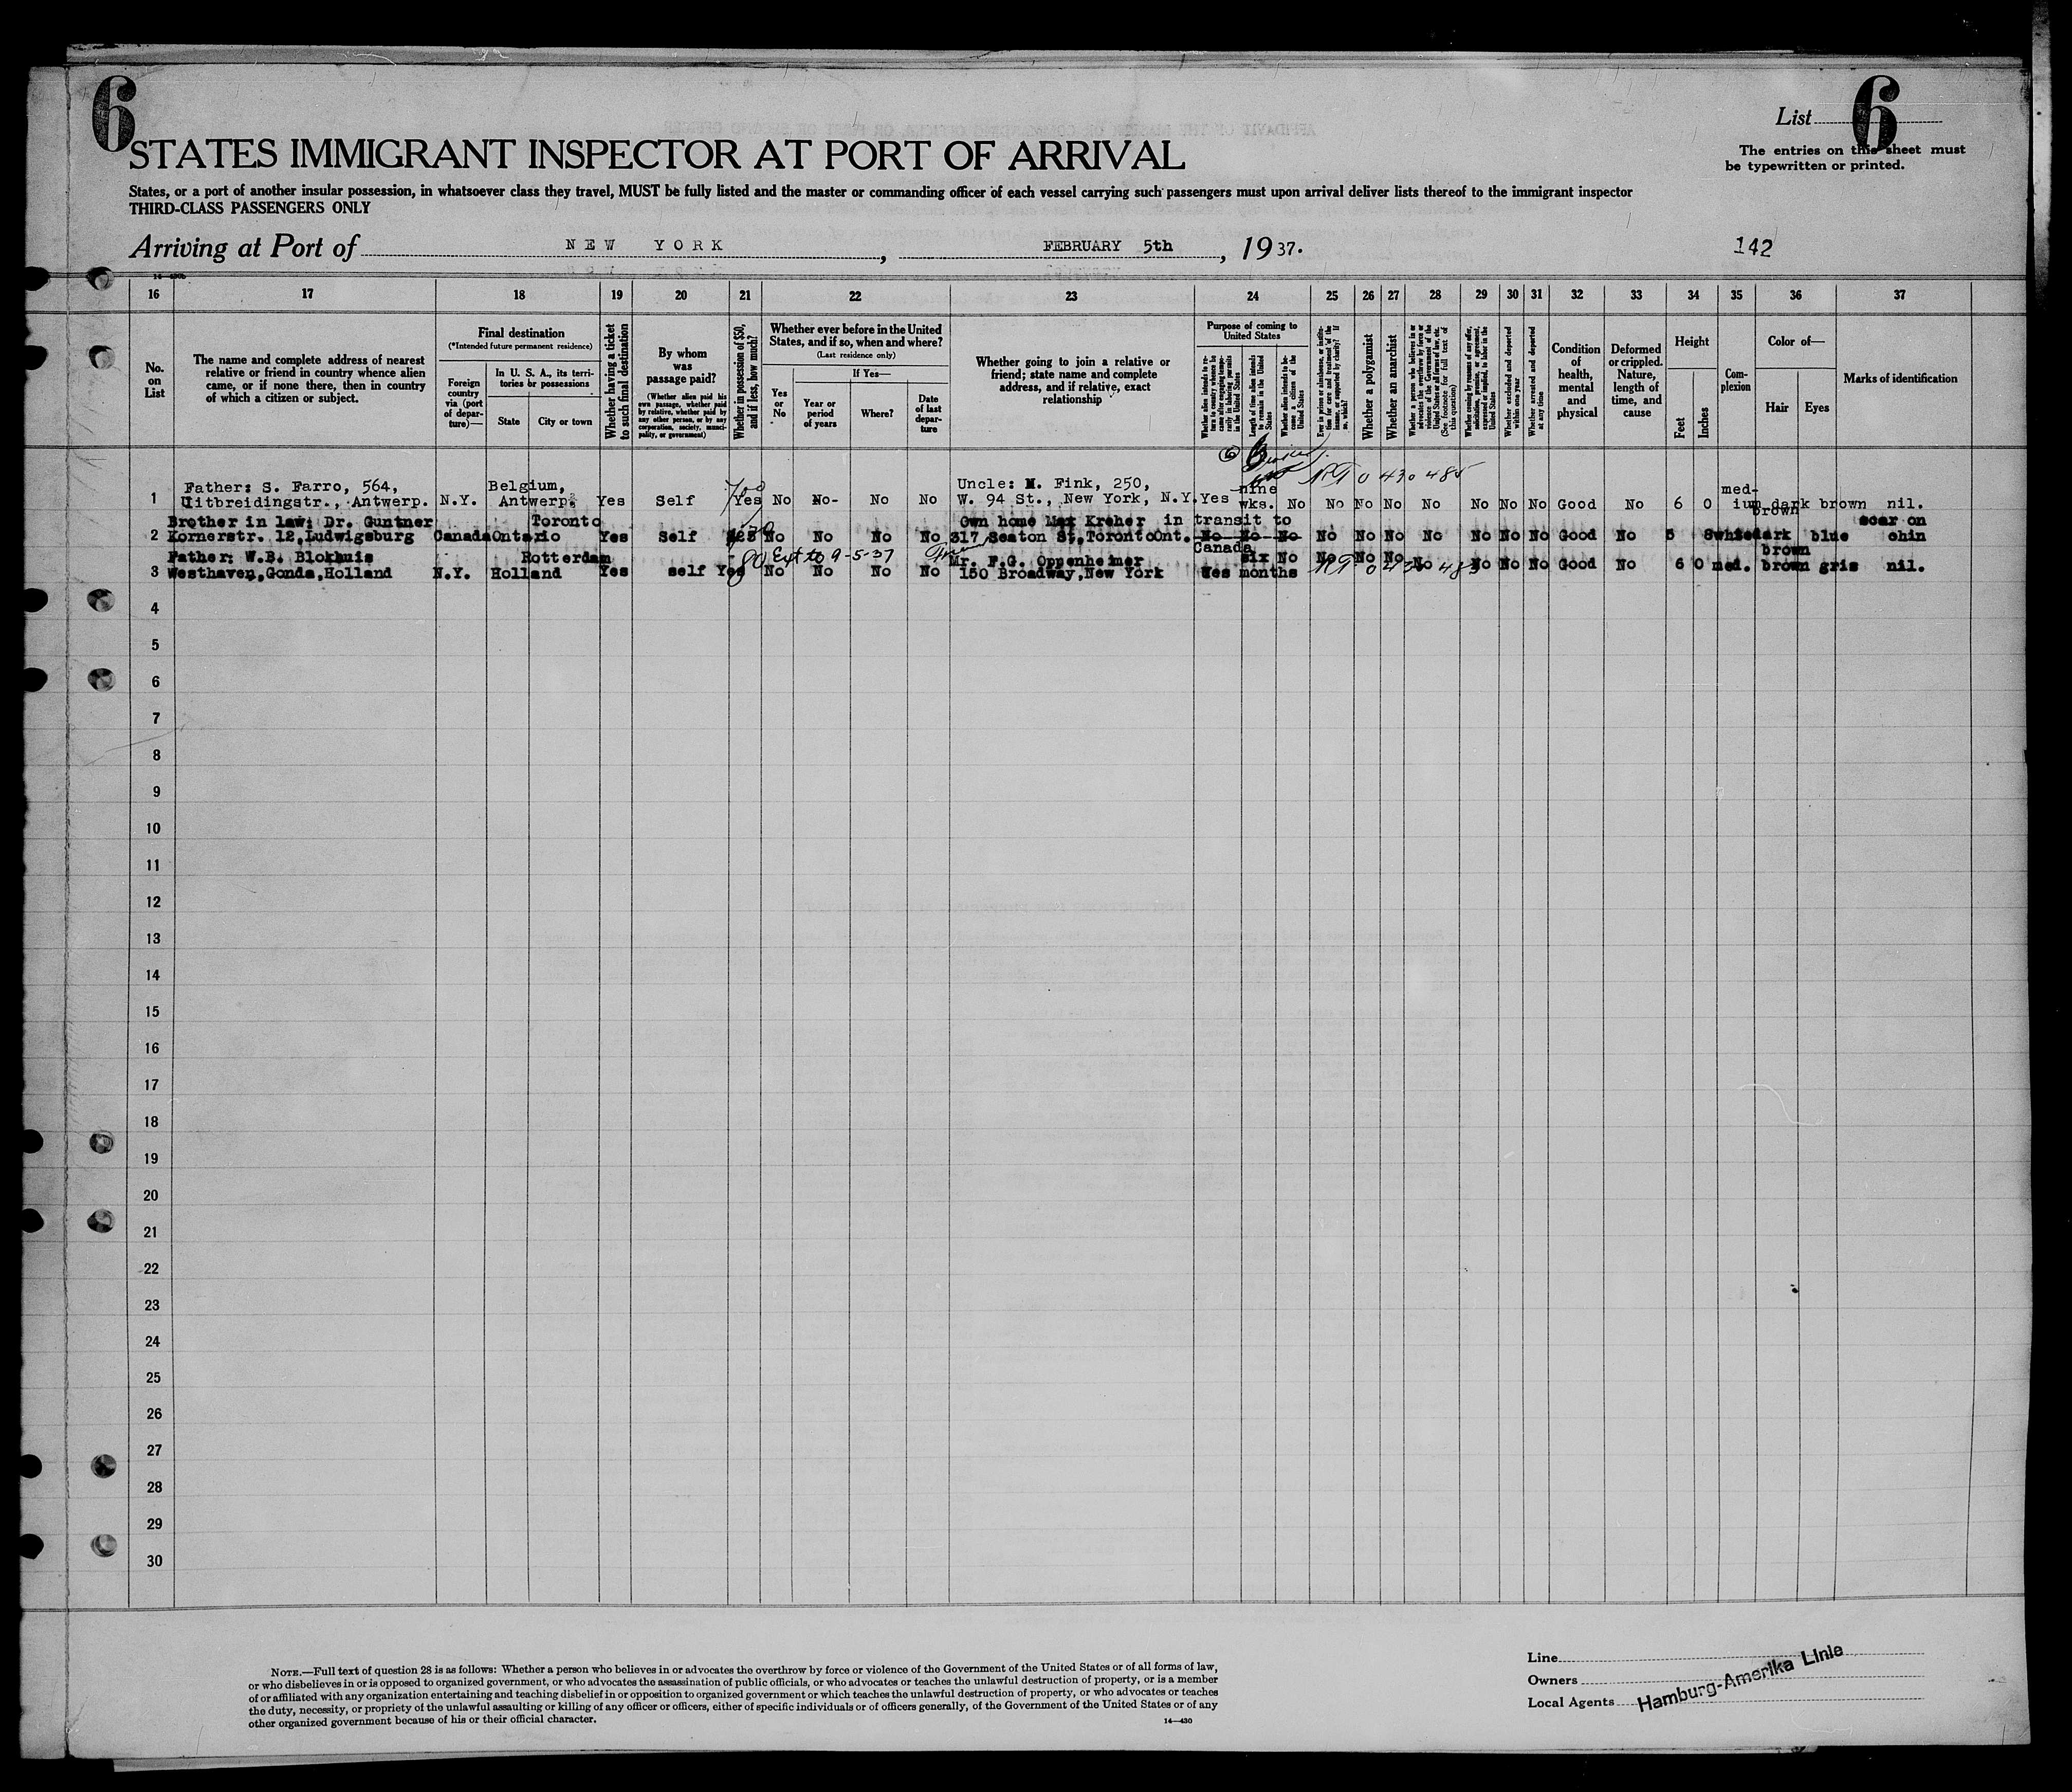 6
List 6
The entries on this sheet must
be typewritten or printed.
STATES IMMIGRANT INSPECTOR AT PORT OF ARRIVAL
States, or a port of another insular possession, in whatsoever class they travel, MUST be fully listed and the master or commanding officer of each vessel carrying such passengers must upon arrival deliver lists thereof to the immigrant inspector
THIRD-CLASS PASSENGERS ONLY
Arriving at Port of NEW YORK, FEBRUARY 5th, 1937. 142
16 17 18 19 20 21 22 23 24 25 26 27 28 29 30 31 32 33 34 35 36 37
No. on List
The name and complete address of nearest
relative or friend in country whence alien
came, or if none there, then in country
of which a citizen or subject.
Final destination
(*Intended future permanent residence)
Foreign country via (port of departure)—
In U. S. A., its territories or possessions
State
City or town
Whether having a ticket to such final destination
By whom was passage paid?
(Whether alien paid his own passage, whether paid by relative, whether paid by any other person, or by any corporation, society, municipality, or government)
Whether in possession of $50, and if less, how much?
Whether ever before in the United
States, and if so, when and where?
(Last residence only)
Yes or No
If Yes—
Year or period of years
Where?
Date of last departure
Whether going to join a relative or
friend; state name and complete
address, and if relative, exact
relationship
Purpose of coming to
United States
Whether alien intends to return to country whence he came after engaging temporarily in laboring pursuits in the United States
Length of time alien intends to remain in the United States
Whether alien intends to become a citizen of the United States
Whether a polygamist
Whether an anarchist
Whether excluded and deported within one year
Whether arrested and deported at any time
Condition of health, mental and physical
Deformed or crippled. Nature, length of time, and cause
Height
Feet
Inches
Complexion
Color of—
Hair
Eyes
Marks of identification
1 Father: S. Farro, 564, Belgium, Uncle: M. Fink, 250, nine med-
Uitbreidingstr., Antwerp. N.Y. Antwerp. Yes Self Yes No No- No No W. 94 St., New York, N.Y. Yes wks. No No No No No No No No Good No 6 0 ium dark brown brown nil.
Brother in law: Dr. Guntner Toronto Own home Max Kreher in transit to scar on
2 Kornerstr. 12,Ludwigsburg Canada Ontario Yes Self No No No No 317 Seaton St,Toronto Ont. No No No No No No No No No No Good No 5 8 white dark blue chin
Father: W.B. Blokhuis Rotterdam Ext to 9-5-37 Mr. F.G. Oppenheimer Canada six No No No No brown
3 Westhaven,Gonda,Holland N.Y. Holland Yes self Yes No No No No 150 Broadway,New York Yes months No No No No Good No 6 0 med. brown gris nil.
4
5
6
7
8
9
10
11
12
13
14
15
16
17
18
19
20
21
22
23
24
25
26
27
28
29
30
NOTE.—Full text of question 28 is as follows: Whether a person who believes in or advocates the overthrow by force or violence of the Government of the United States or of all forms of law,
or who disbelieves in or is opposed to organized government, or who advocates the assassination of public officials, or who advocates or teaches the unlawful destruction of property, or is a member
of or affiliated with any organization entertaining and teaching disbelief in or opposition to organized government or which teaches the unlawful destruction of property, or who advocates or teaches
the duty, necessity, or propriety of the unlawful assaulting or killing of any officer or officers, either of specific individuals or of officers generally, of the Government of the United States or of any
other organized government because of his or their official character.
14—430
Line
Owners
Local Agents
Hamburg-Amerika Linie